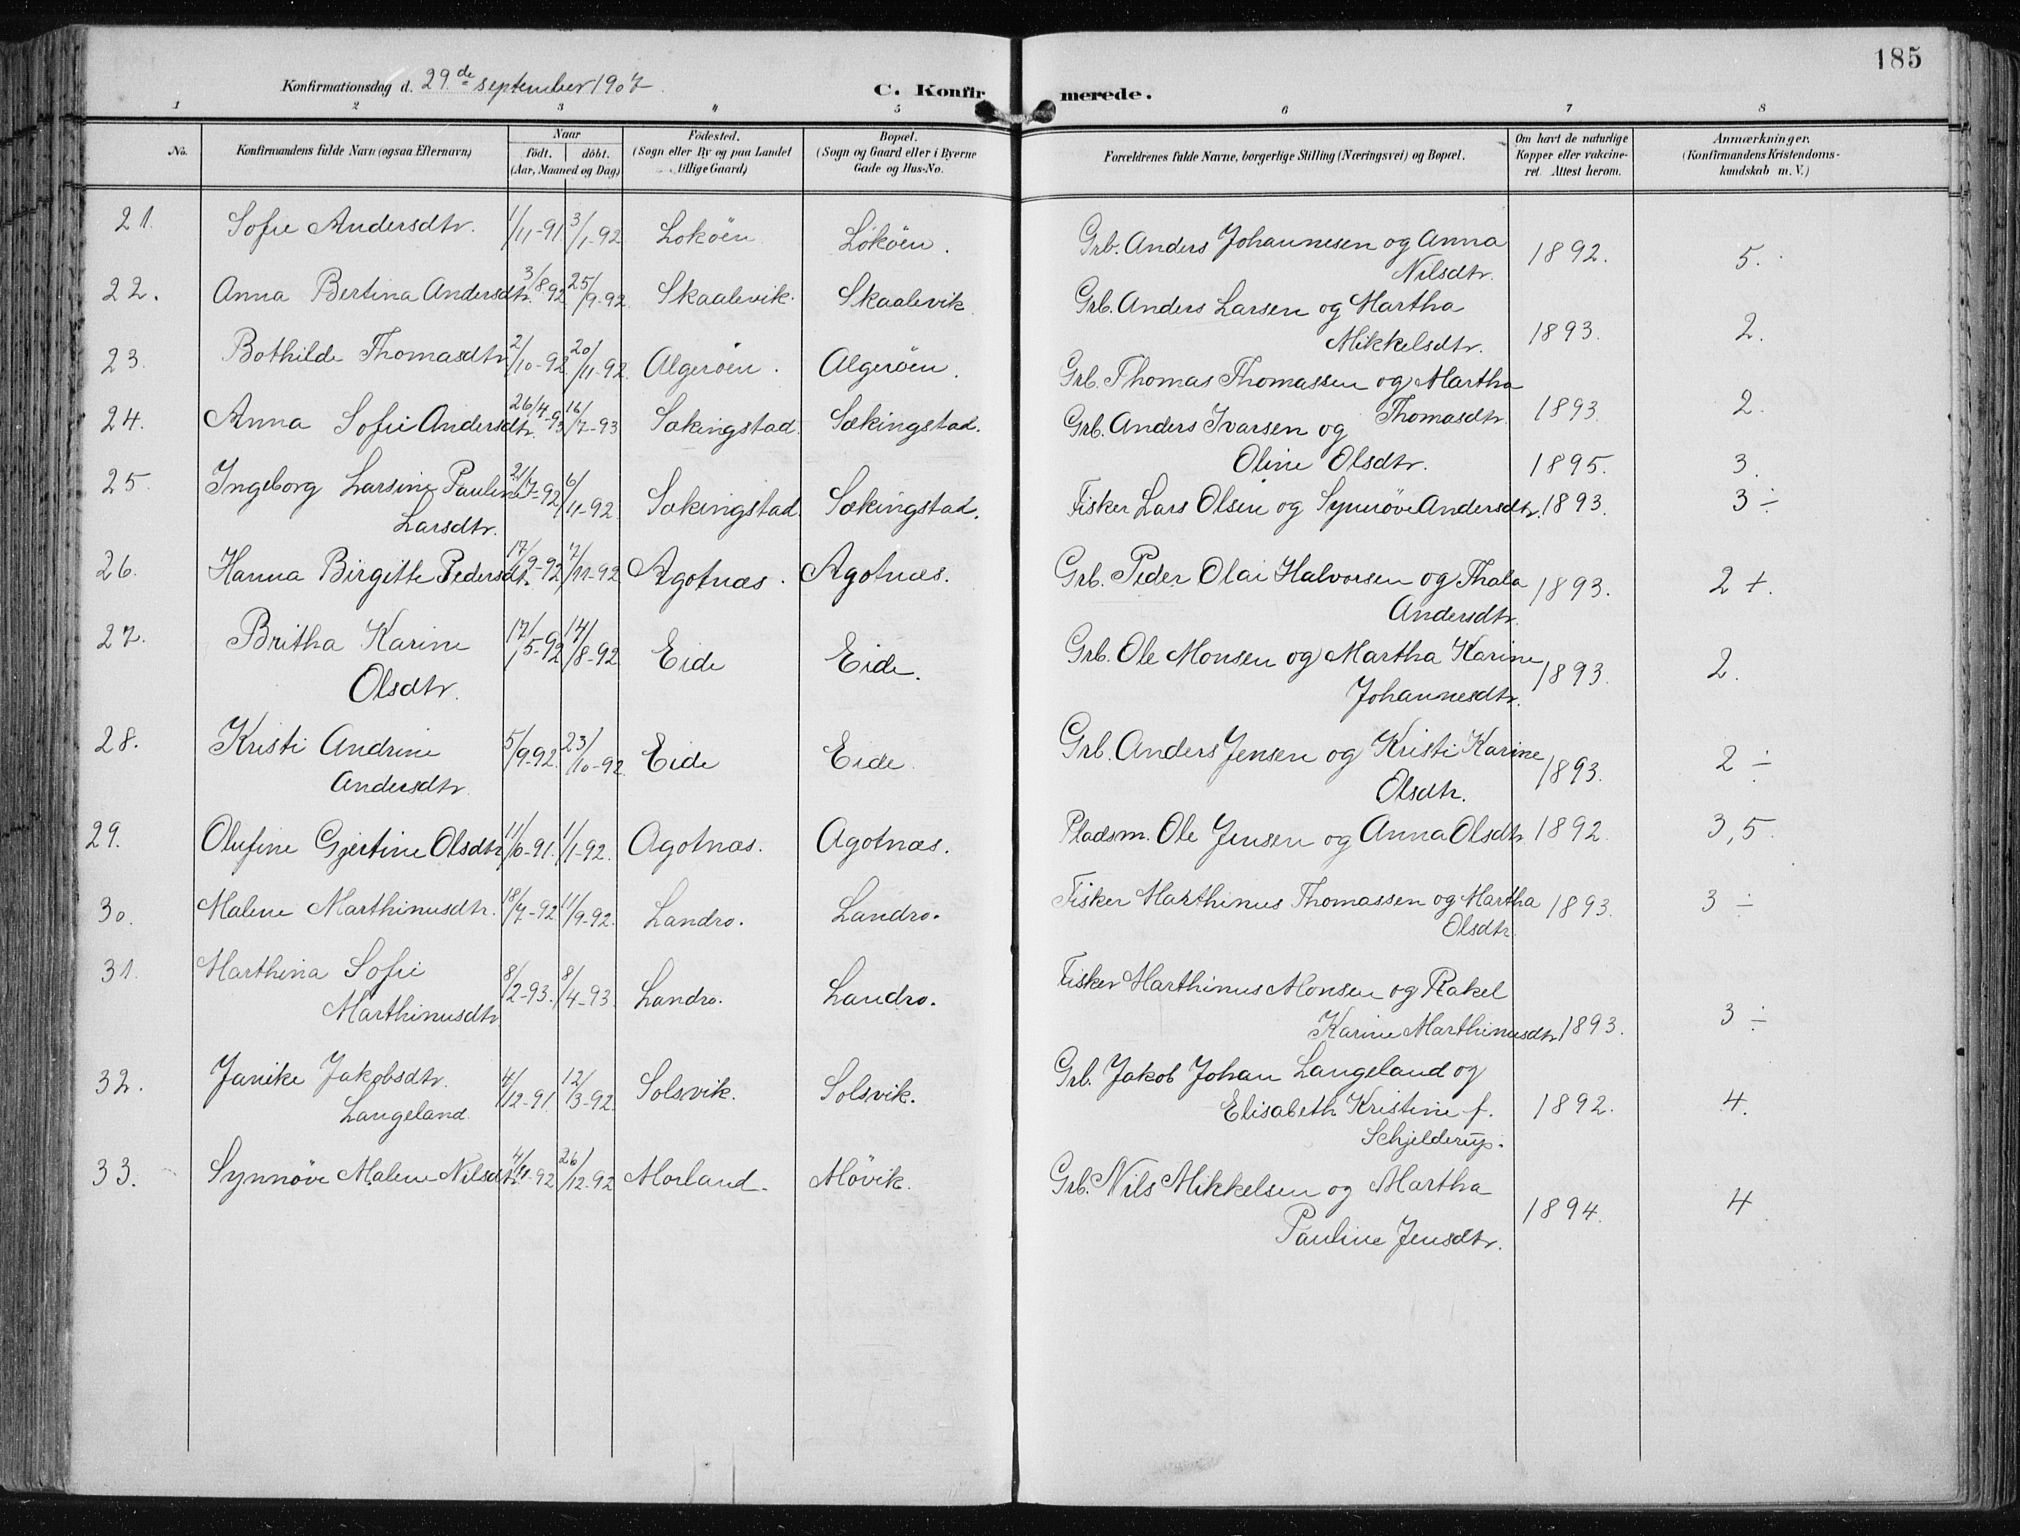 185
Konfirmationsdag d. 29de september 1907.
C. Konfirmerede.
1 2 3 4 5 6 7 8
No. | Konfirmandens fulde Navn (ogsaa Efternavn) | Naar født. | døbt. (Aar, Maaned og Dag) | Fødested. (Sogn eller By og paa Landet tillige Gaard) | Bopæl. (Sogn og Gaard eller i Byerne Gade og Hus-No. | Forældrenes fulde Navne, borgerlige Stilling (Næringsvei) og Bopæl. | Om havt de naturlige Kopper eller vakcineret. Attest herom. | Anmærkninger. (Konfirmandens Kristendomskundskab m. V.)
21. Sofie Andersdtr. 1/11-91 3/1-92 Lokøen Løkøen. Grb. Anders Johannesen og Anna Nilsdtr. 1892. 5.
22. Anna Bertina Andersdtr. 3/8-92 25/9-92 Skaalevik. Skaalevik Grb. Anders Larsen og Martha Mikkelsdtr. 1893. 2.
23. Bothilde Thomasdtr 2/10-92 20/11-92 Algerøen. Algerøen. Grb. Thomas Thomassen og Martha Thomasdtr. 1893. 2.
24. Anna Sofie Andersdtr. 26/4-93 16/7-93 Sækingstad. Sækingstad. Grb. Anders Ivarsen og Oline Olsdtr. 1895. 3.
25. Ingeborg Larsine Pauline Larsdtr. 21/7-92 6/11-92. Sækingstad. Sækingstad. Fisker Lars Olsen og Synnøve Andersdtr. 1893. 3 ÷
26. Hanna Birgitte Pedersdt. 17/9-92 7/11-92 Agotnæs. Agotnæs. Grb. Peder Olai Halvorsen og Thala Andersdtr. 1893. 2 +.
27. Britha Karine Olsdtr. 17/5-92 14/8-92 Eide Eide. Grb. Ole Monsen og Martha Karine Johannesdtr. 1893. 2.
28. Kristi Andrine Andersdtr. 5/9-92. 23/10-92 Eide Eide. Grb. Anders Jensen og Kristi Karine Olsdtr. 1893. 2 ÷
29. Olufine Gjertine Olsdtr 11/10-91. 1/1-92. Agotnæs. Agotnæs. Pladsm. Ole Jensen og Anna Olsdtr 1892. 3,5
30. Malene Marthinusdtr. 18/7-92 11/9-92. Landro. Landro. Fisker Marthinus Thomassen og Martha Olsdtr 1893. 3 ÷
31. Marthina Sofie Marthinusdtr. 8/2-93. 8/4-93. Landro. Landro. Fisker Marthinus Monsen og Rakel Karine Marthinusdtr 1893. 3 ÷
32. Janike Jakobsdtr. Langeland 4/12-91. 12/3-92. Solsvik. Solsvik. Grb. Jakob Johan Langeland og Elisabeth Kristine f. Schjelderup. 1892. 4.
33. Synnøve Malene Nilsdt. 4/11-92 26/12-92 Morland. Møvik. Grb. Nils Mikkelsen og Martha Pauline Jensdtr. 1894. 4